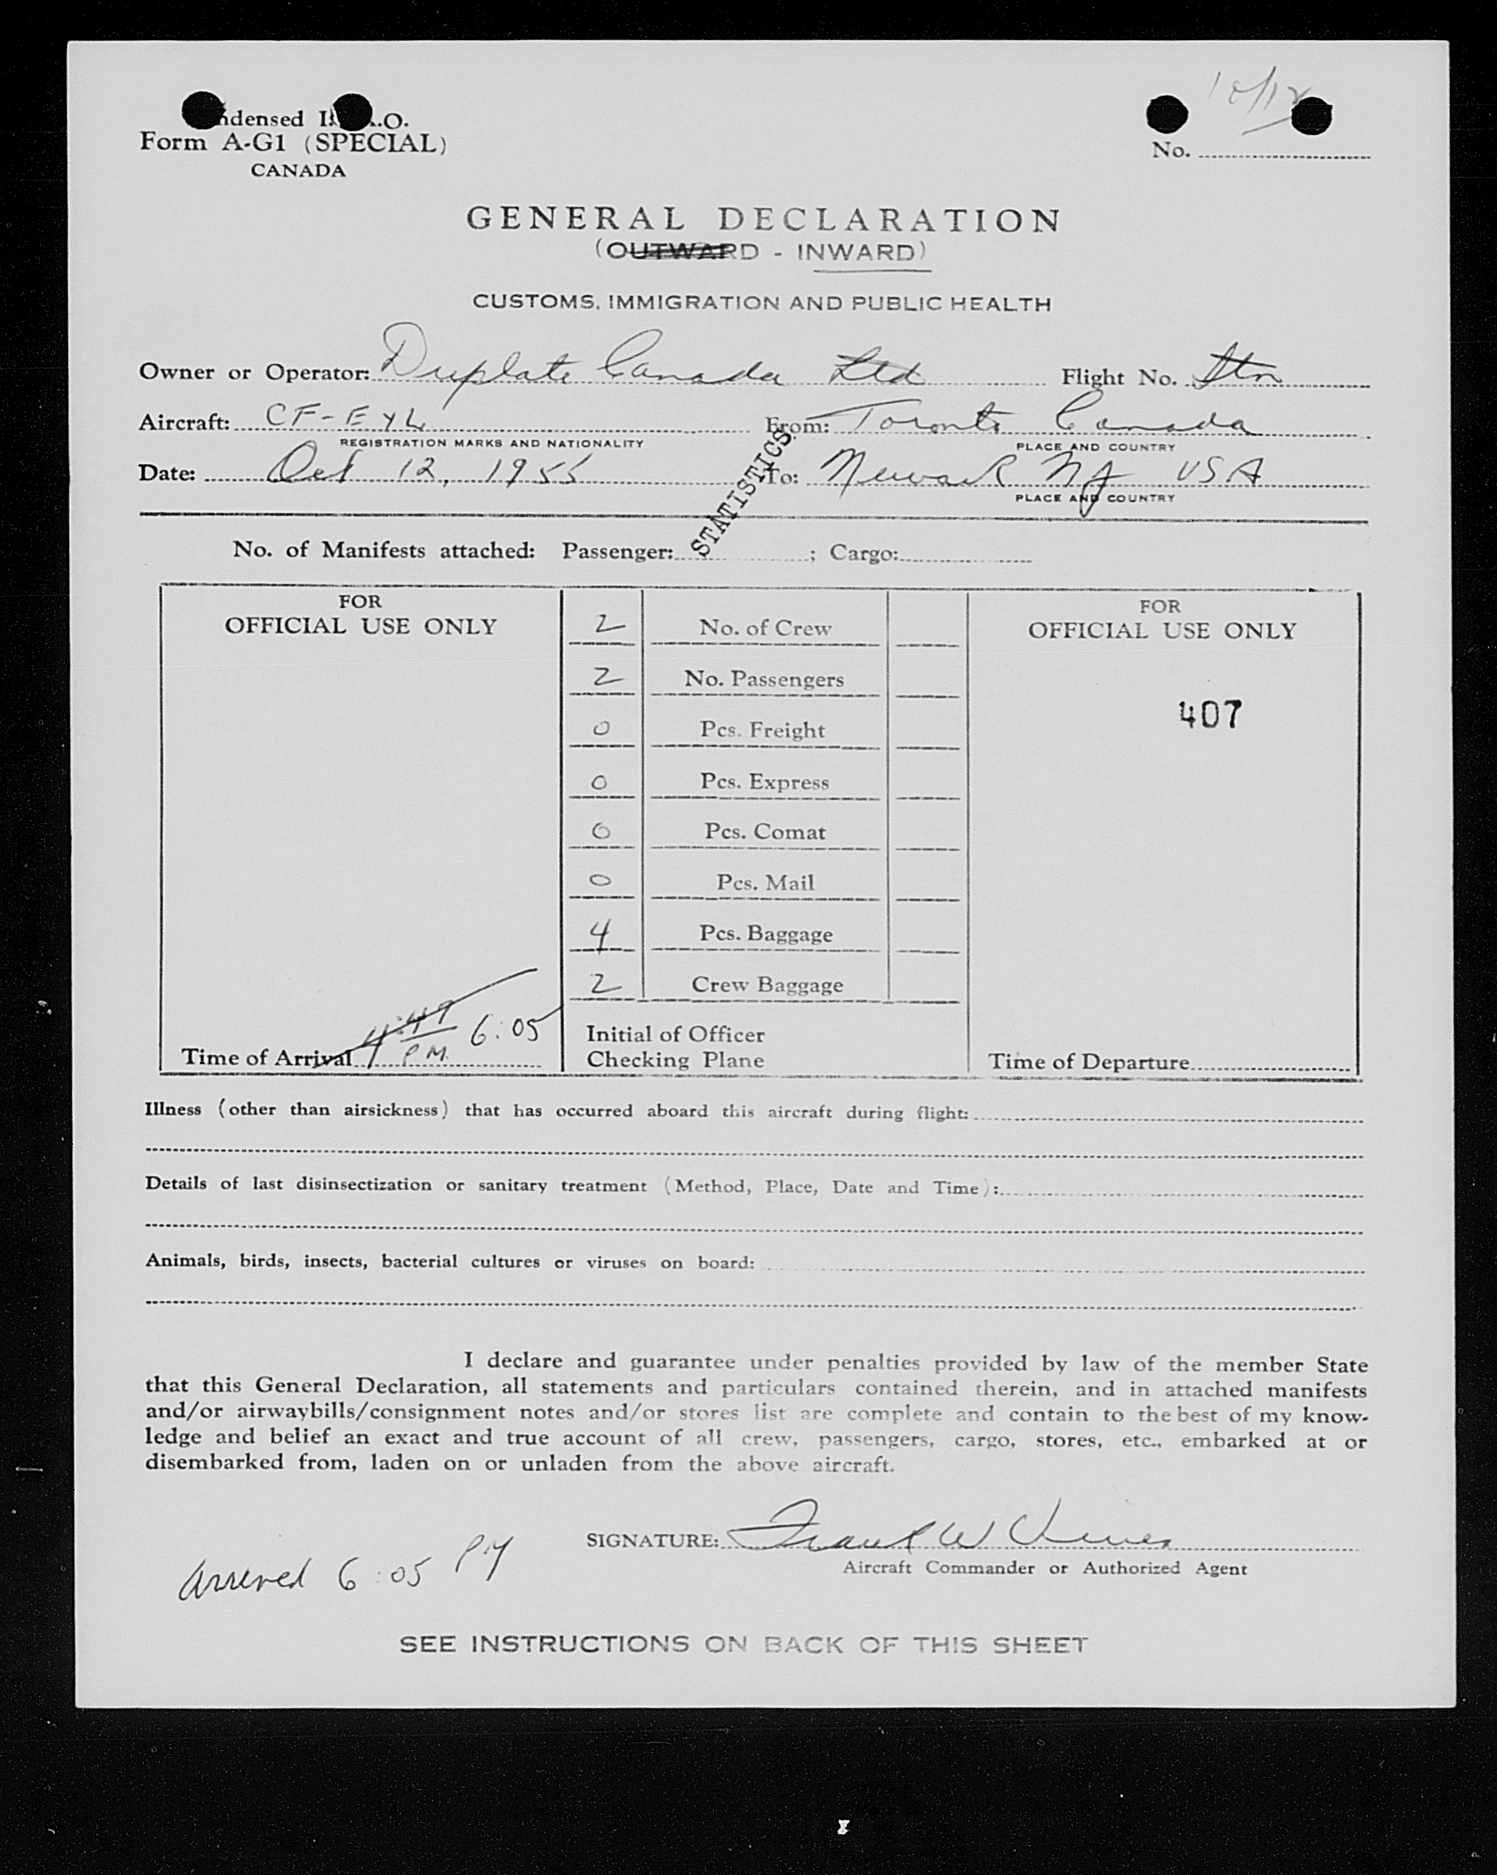 10/12
Form A-G1 (SPECIAL)
CANADA
No.
GENERAL DECLARATION
(OUTWARD - INWARD)
CUSTOMS, IMMIGRATION AND PUBLIC HEALTH
Owner or Operator: Duplate Canada Ltd Flight No.
Aircraft: CF-EYL From: Toronto Canada
REGISTRATION MARKS AND NATIONALITY PLACE AND COUNTRY
Date: Oct 12, 1955 To: Newark NJ USA
PLACE AND COUNTRY
STATISTICS
No. of Manifests attached: Passenger: ; Cargo:
FOR
OFFICIAL USE ONLY
2 No. of Crew
2 No. Passengers
0 Pcs. Freight
0 Pcs. Express
0 Pcs. Comat
0 Pcs. Mail
4 Pcs. Baggage
2 Crew Baggage
FOR
OFFICIAL USE ONLY
407
Time of Arrival 4:49 P.M. 6:05
Initial of Officer
Checking Plane
Time of Departure
Illness (other than airsickness) that has occurred aboard this aircraft during flight:
Details of last disinsectization or sanitary treatment (Method, Place, Date and Time):
Animals, birds, insects, bacterial cultures or viruses on board:
I declare and guarantee under penalties provided by law of the member State
that this General Declaration, all statements and particulars contained therein, and in attached manifests
and/or airwaybills/consignment notes and/or stores list are complete and contain to the best of my know-
ledge and belief an exact and true account of all crew, passengers, cargo, stores, etc., embarked at or
disembarked from, laden on or unladen from the above aircraft.
SIGNATURE: Frank W
Aircraft Commander or Authorized Agent
Arrived 6:05 PM
SEE INSTRUCTIONS ON BACK OF THIS SHEET